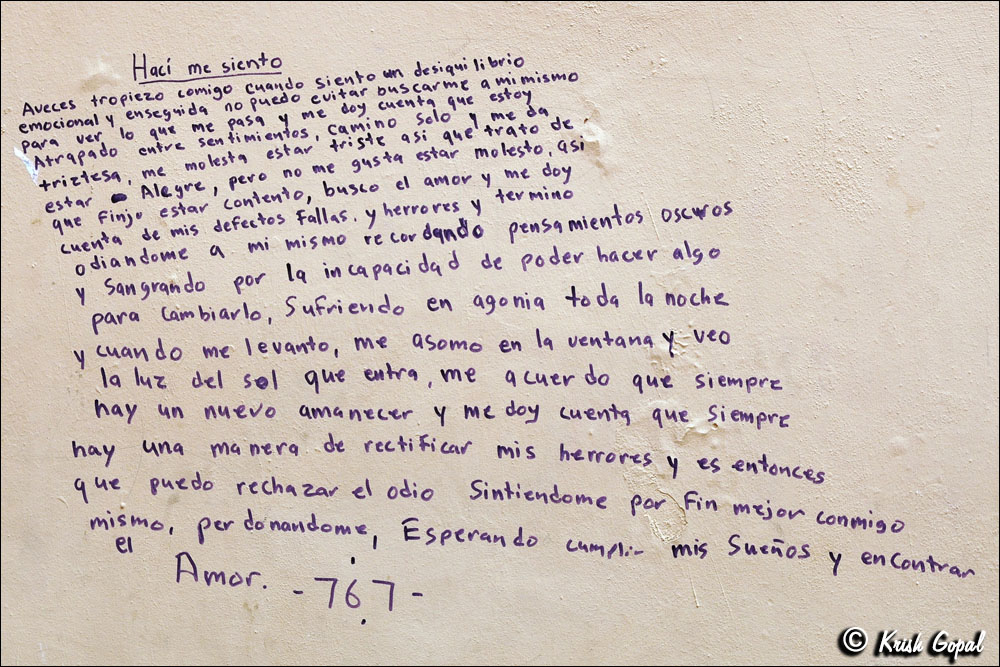 Hací me siento
Aveces tropiezo comigo cuando siento un desiquilibrio
emocional y enseguida no puedo evitar buscarme a mi mismo
para ver lo que me pasa y me doy cuenta que estoy
Atrapado entre sentimientos, camino solo y me da
triztesa, me molesta estar triste asi que trato de
estar Alegre, pero no me gusta estar molesto, asi
que Finjo estar contento, busco el amor y me doy
cuenta de mis defectos Fallas. y herrores y termino
odiandome a mi mismo recordando pensamientos oscuros
y Sangrando por la incapacidad de poder hacer algo
para cambiarlo, Sufriendo en agonia toda la noche
y cuando me levanto, me asomo en la ventana y veo
la luz del sol que entra, me acuerdo que siempre
hay un nuevo amanecer y me doy cuenta que siempre
hay una manera de rectificar mis herrores y es entonces
que puedo rechazar el odio Sintiendome por Fin mejor conmigo
mismo, perdonandome, Esperando cumplir mis Sueños y encontrar
el
Amor. -767-
© Krish Gopal